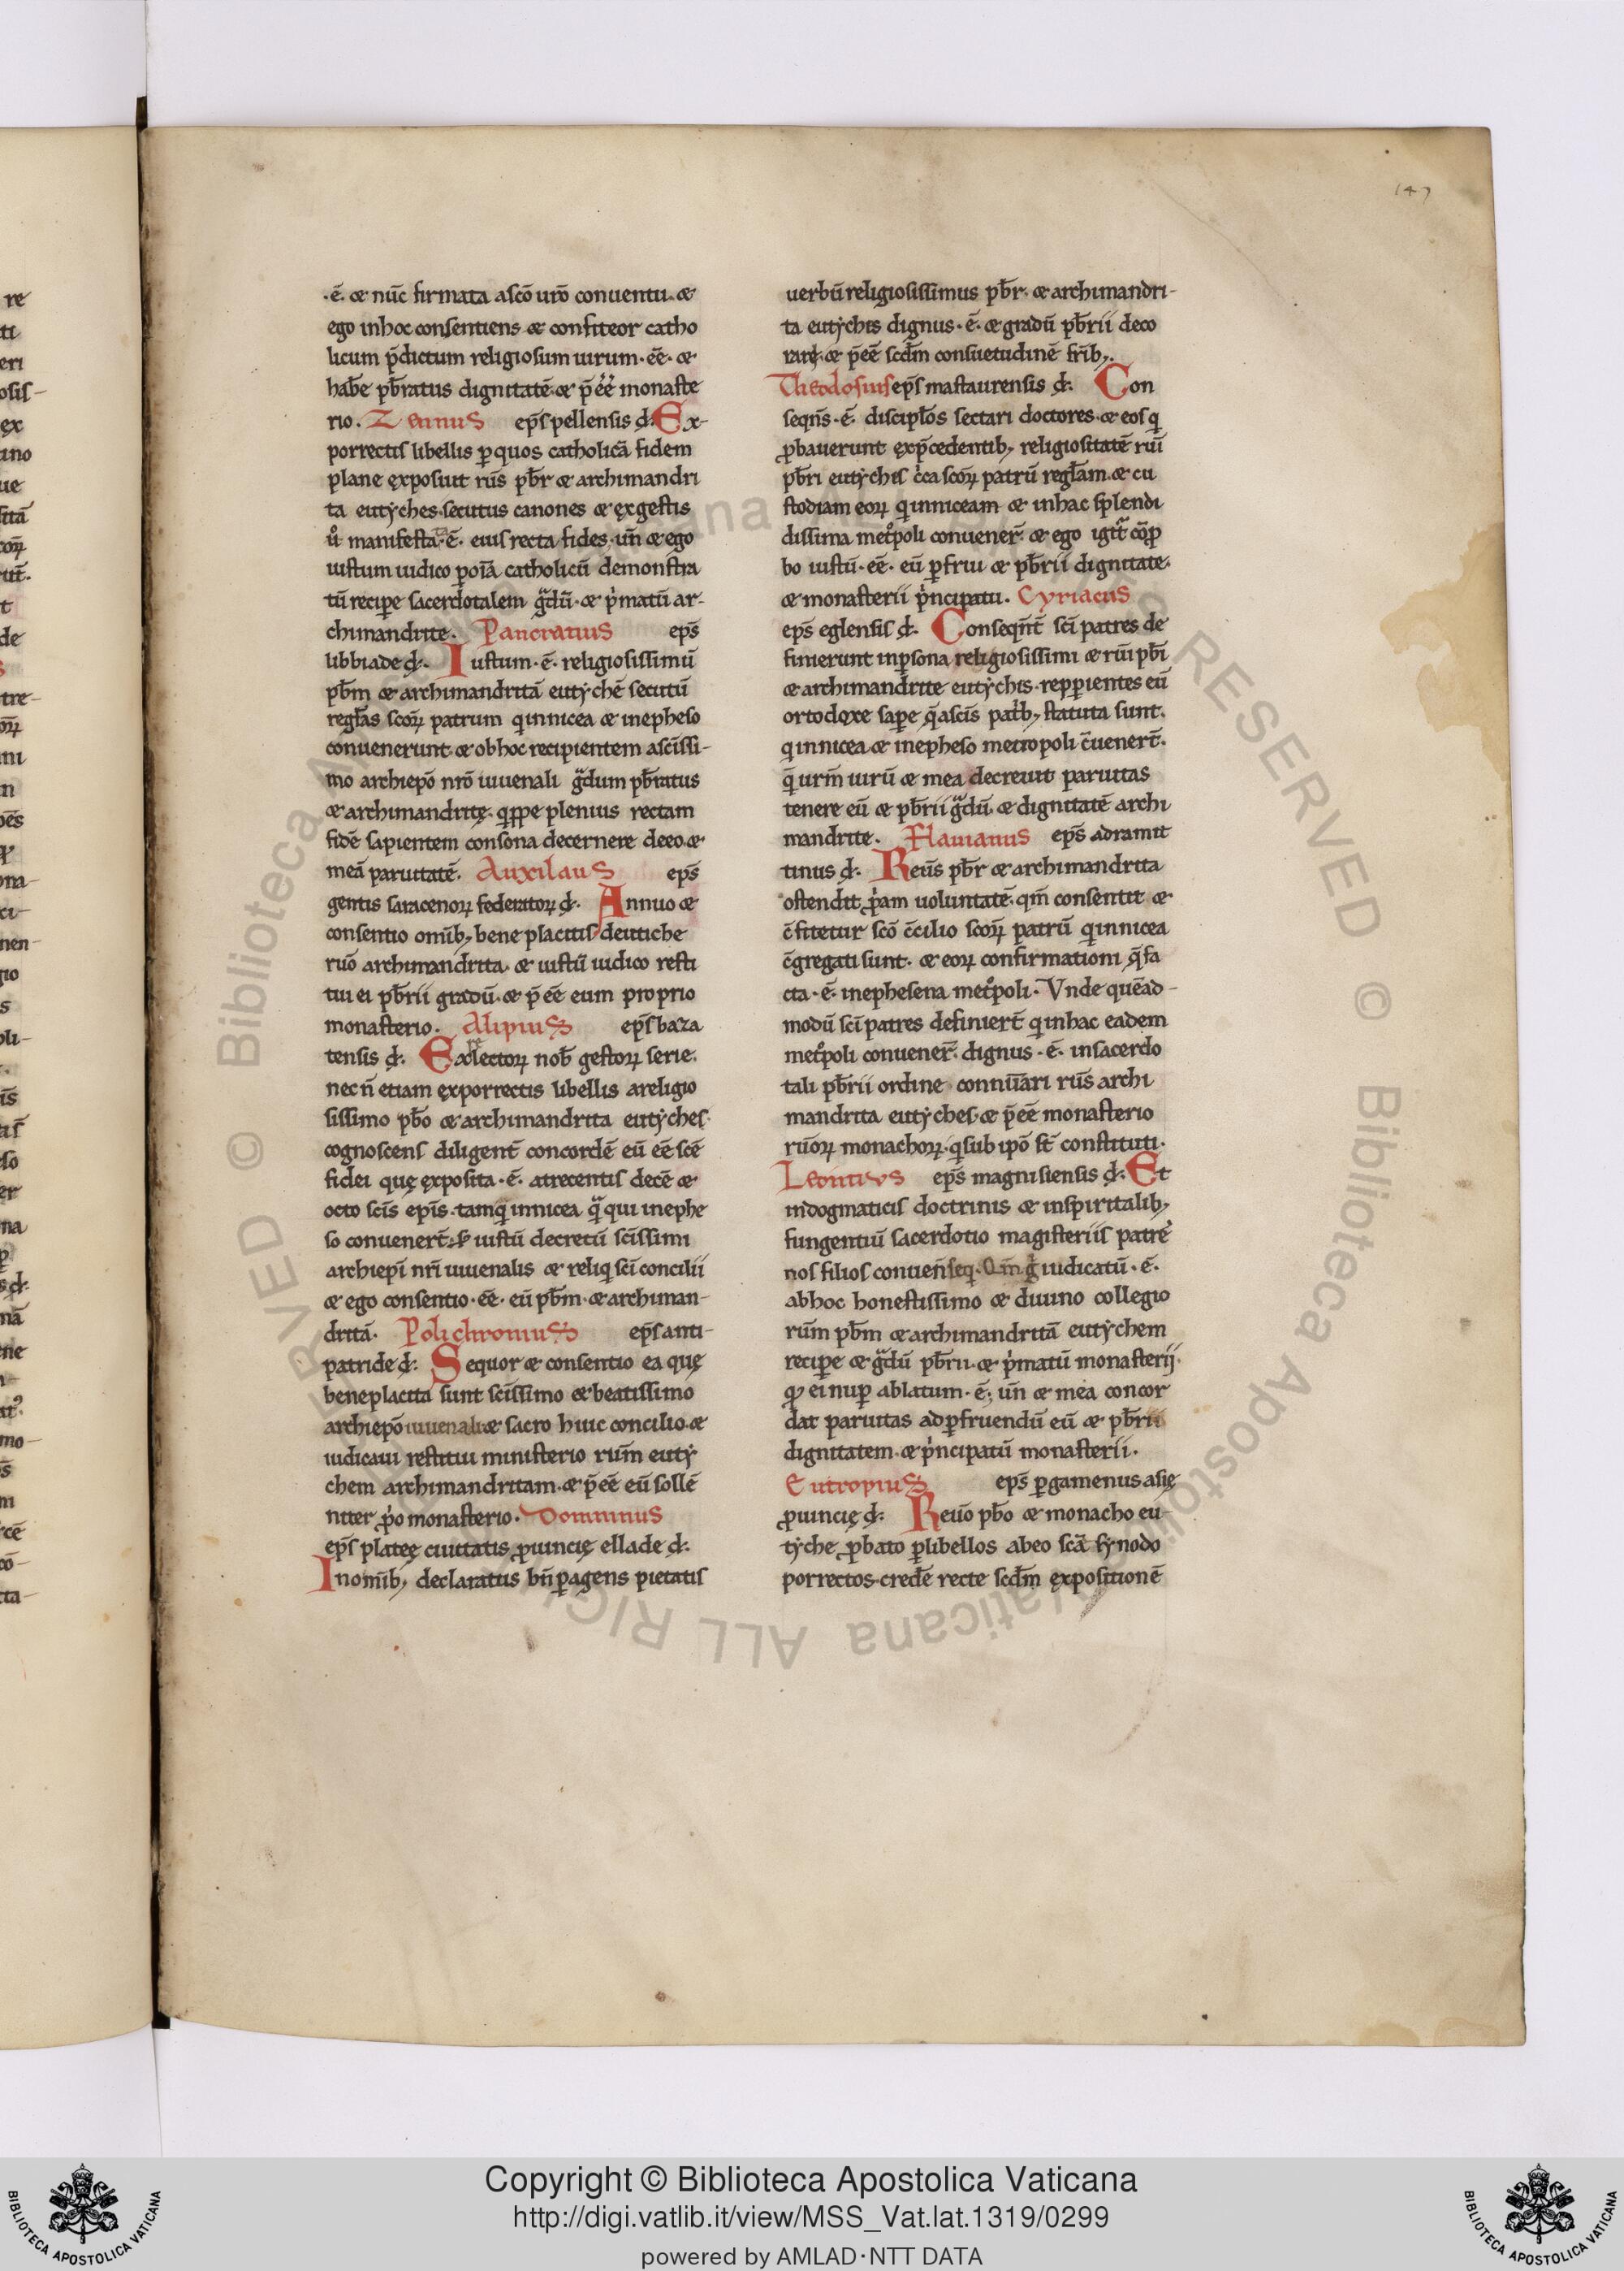 147
.ē. & nūc firmata a scō ur̄o conuentu. &
ego in hoc consentiens & confiteor catho
licum p̄dictum religiosum uirum. eē. &
hab̄e pb̄ratus dignitatē. & p̄eē monaste
rio. Zennus ep̄s pellensis d̵. Ex-
porrectis libellis ꝑ quos catholicā fidem
plane exposiut rūs pb̄r & archimandri
ta eutẏches. secutus canones & ex gestis
manifesta. ē. eius recta fides. un̄ & ego
iustum iudico catholicū demonstra
tū recipe sacerdotalem gͣdū. & pⁱmatū ar-
chimandrite. Pancratius ep̄s
libbiade d̵. Iustum. ē. religiosissimū
pb̄m & archimandritā eutẏchē secutū
regl̄as scōꝝ patrum q in nicea & in epheso
conuenerunt. & ob hoc recipientem a scīssi-
mo archiepō nr̄o iuuenali gͣdum pb̄ratus
& archimandritę. qꝑpe plenius rectam
fidē sapientem consona decernere de eo. &
meā paruitatē. Auxilaus ep̄s
gentis saracenoꝝ federatoꝝ d̵. Annuo &
consentio omīb; bene placitis de eutiche
ruō archimandrita. & iustū iudico resti
tui ei pb̄rii gradū. & p̄eē eum proprio
monasterio. Alipius ep̄s baza
tensis d̵. Ea relectoꝝ nob̄ gestoꝝ serie.
nec n̄ etiam ex porrectis libellis a religio
sissimo pb̄o & archimandrita eutẏches.
cognoscens diligent̄ concordē eū eē scē
fidei quę exposita. ē. a trecentis decē &
octo scīs epīs. tam qⁱ in nicea qͣ qui in ephe
so conuenert̄. iustū decretū scīssimi
archiepī nr̄i iuuenalis & reliq scī concilii
& ego consentio. eē. eū pb̄m. & archiman-
dritā. Polichronius ep̄s anti-
patride d̵. Sequor & consentio ea quę
beneplacita sunt scīssimo & beatissimo
archiepō iuuenali & sacro huic concilio. &
iudicaui restitui ministerio rūm eutẏ
chem archimandritam. & p̄eē eū sollē
niter ꝓo monasterio. Domninus
ep̄s plateę ciuitatis ꝓuincię ellade d̵.
In omīb; declaratus bn̄ ꝑagens pietatis
uerbū religiosissimus pb̄r. & archimandri-
ta eutẏches dignus. ē. & gradū pb̄rii deco
rarę. & p̄eē scd̄m consuetudinē fr̄ib;.
Theodosius ep̄s mastaurensis d̵. Con
seqn̄s. ē. discipl̄os sectari doctores. & eos q
ꝓbauerunt ex p̄cedentib; religiositatē ruī
pb̄ri eutẏchis cⁱca scōꝝ patrū regl̄am. & cu
stodiam eoꝝ q in niceam & in hac splendi
dissima met͛poli conuener̄. & ego igit̄ cōꝓ
bo iustū. eē. eū ꝑfrui & pb̄rii dignitate.
& monasterii pⁱncipatu. Cyriacus
ep̄s eglensis d̵. Conseqn̄t scī patres de
finierunt in ꝑsona religiosissimi & ruī pb̄i
& archimandrite eutẏchis. repꝑientes eū
ortodoxe sapere q̄ a scīs patⁱb; statuta sunt.
q in nicea & in epheso metropoli c̄uenert̄.
q̄ urm̄ uirū & mea decreuit paruitas
tenere eū & pb̄rii gͣdū. & dignitatē archi
mandrite. Flauianus ep̄s adramit
tinus d̵. Reūs pb̄r & archimandrita
ostendit ꝓpam uoluntatē. qm̄ consentit &
c̄fitetur scō c̄cilio scōꝝ patrū q in nicea
c̄gregati sunt. & eoꝝ confirmationi q̄ fa
cta. ē. in ephesena met͛poli. Vnde quēad-
modū scī patres definiert̄ q in hac eadem
met͛poli conuener̄. dignus. ē. in sacerdo
tali pb̄rii ordine connūari rūs archi
mandrita eutẏches. & p̄eē monasterio
ruōꝝ monachoꝝ. q sub ipō st̄ constituti.
Leontius ep̄s magnisiensis d̵. Et
in dogmaticis doctrinis & in spiritalib;
fungentiū sacerdotio magisteriis patrē
nos filios conuen̄ seq. Qm̄ gⁱ iudicatū. ē.
ab hoc honestissimo & diuino collegio
rūm pb̄m & archimandritā eutẏchem
recipe & gͣdū pb̄rii. & pⁱmatū monasterij.
qͦ ei nuꝑ ablatum. ē; un̄ & mea concor
dat paruitas ad ꝑfruendū eū & pb̄rii
dignitatem. & pⁱncipatū monasterii.
Eutropius ep̄s ꝑgamenus asię
ꝓuincię d̵. Reuō pb̄o & monacho eu-
tẏche ꝓbato ꝑ libellos ab eo scā sẏnodo
porrectos. cred̄e recte scd̄m expositionē
Copyright © Biblioteca Apostolica Vaticana
http://digi.vatlib.it/view/MSS_Vat.lat.1319/0299
powered by AMLAD·NTT DATA